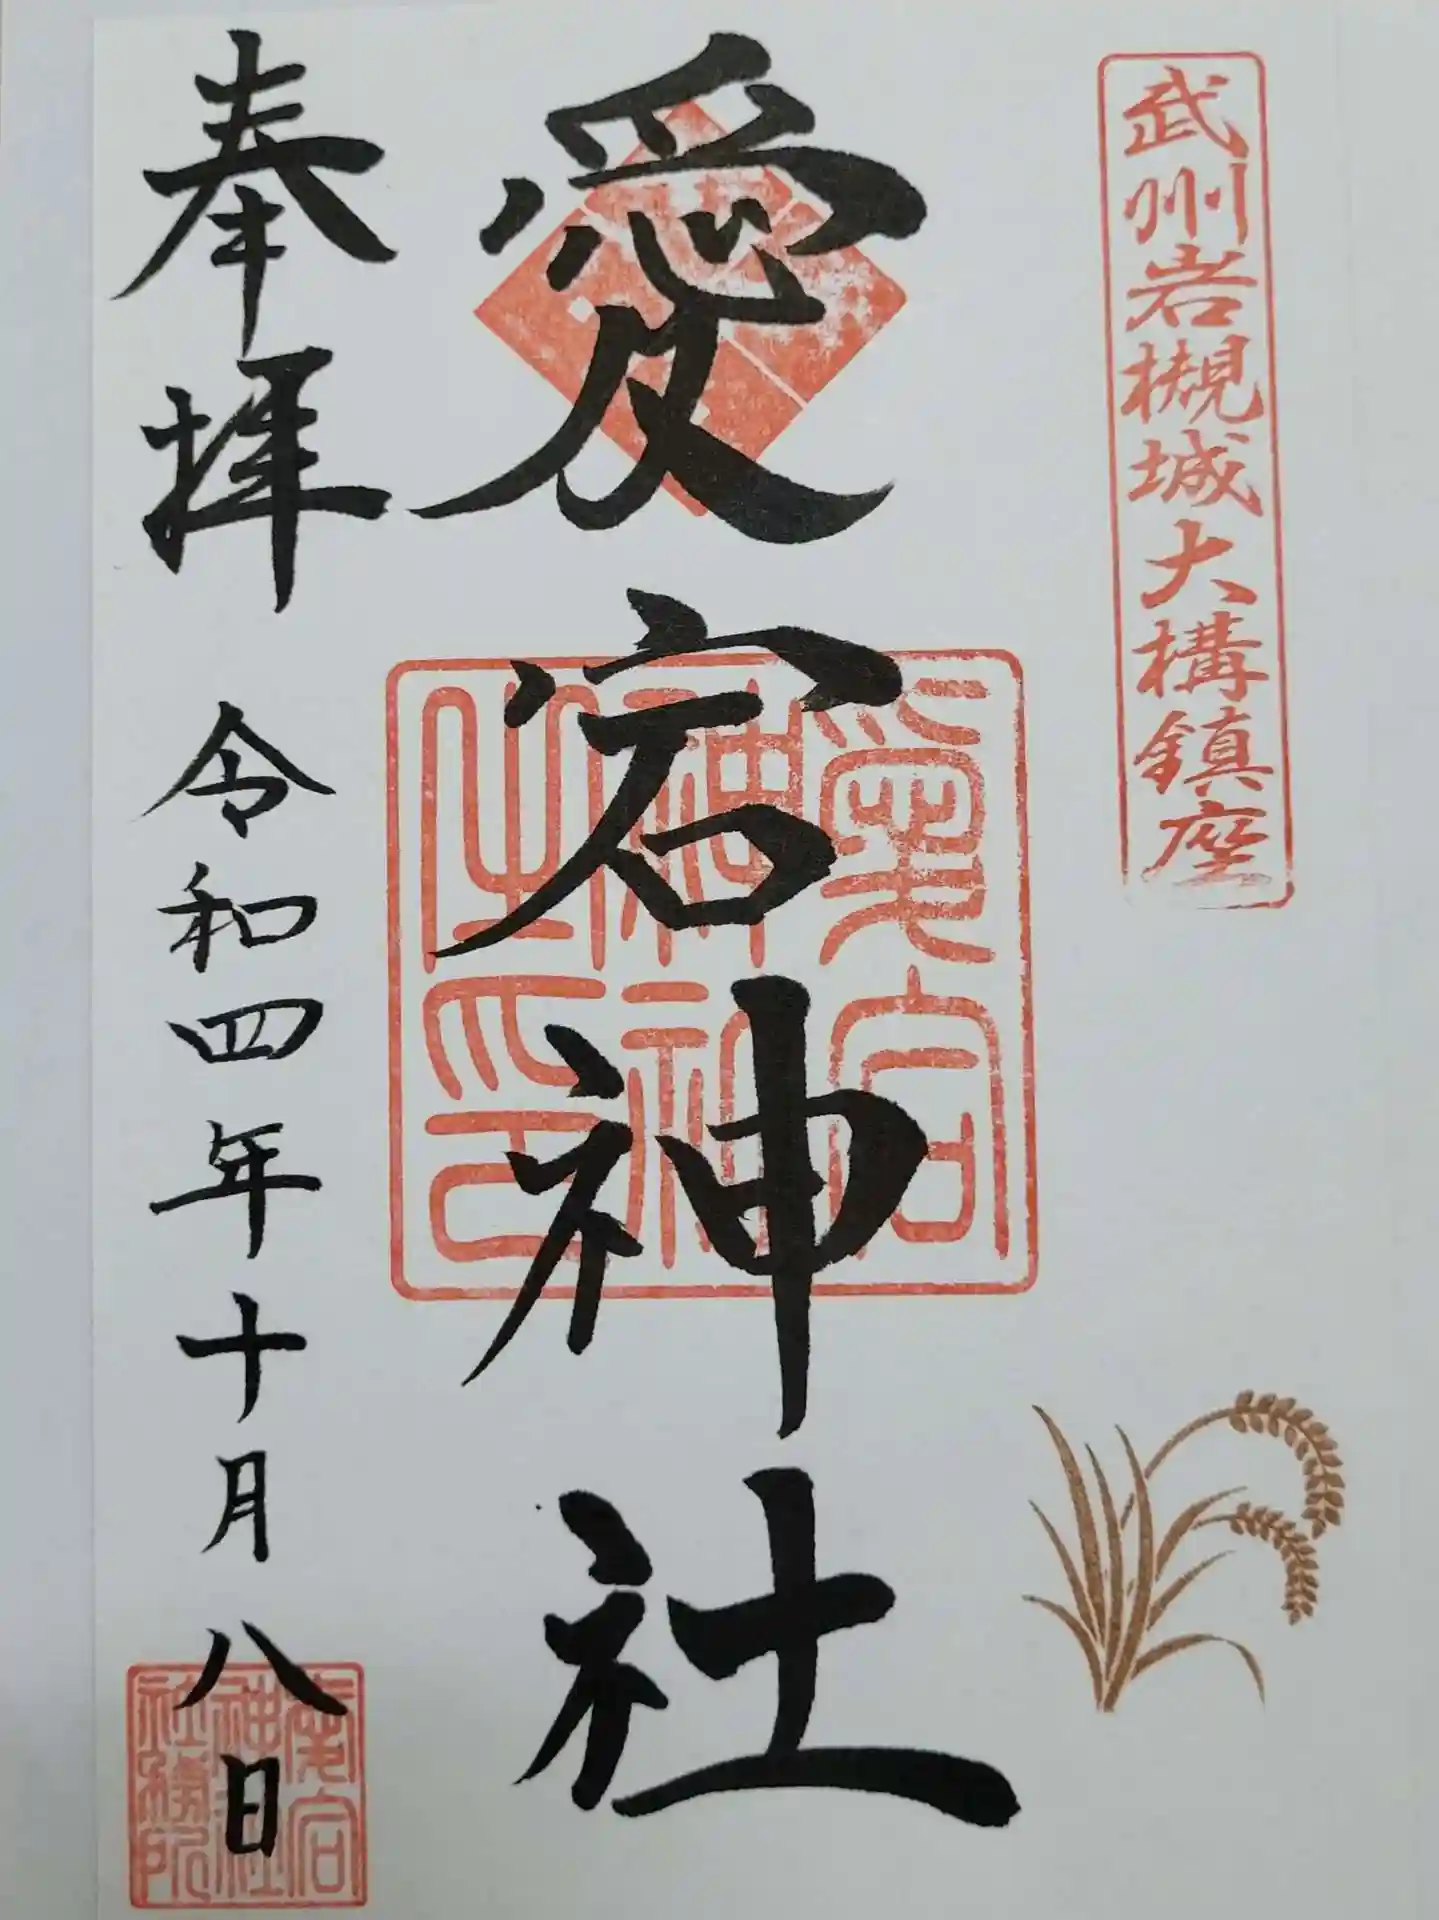 武州岩槻城大構鎮座
愛宕神社
愛宕
神社
之印
奉拝
令和四年十月八日
愛宕
神社
社務所